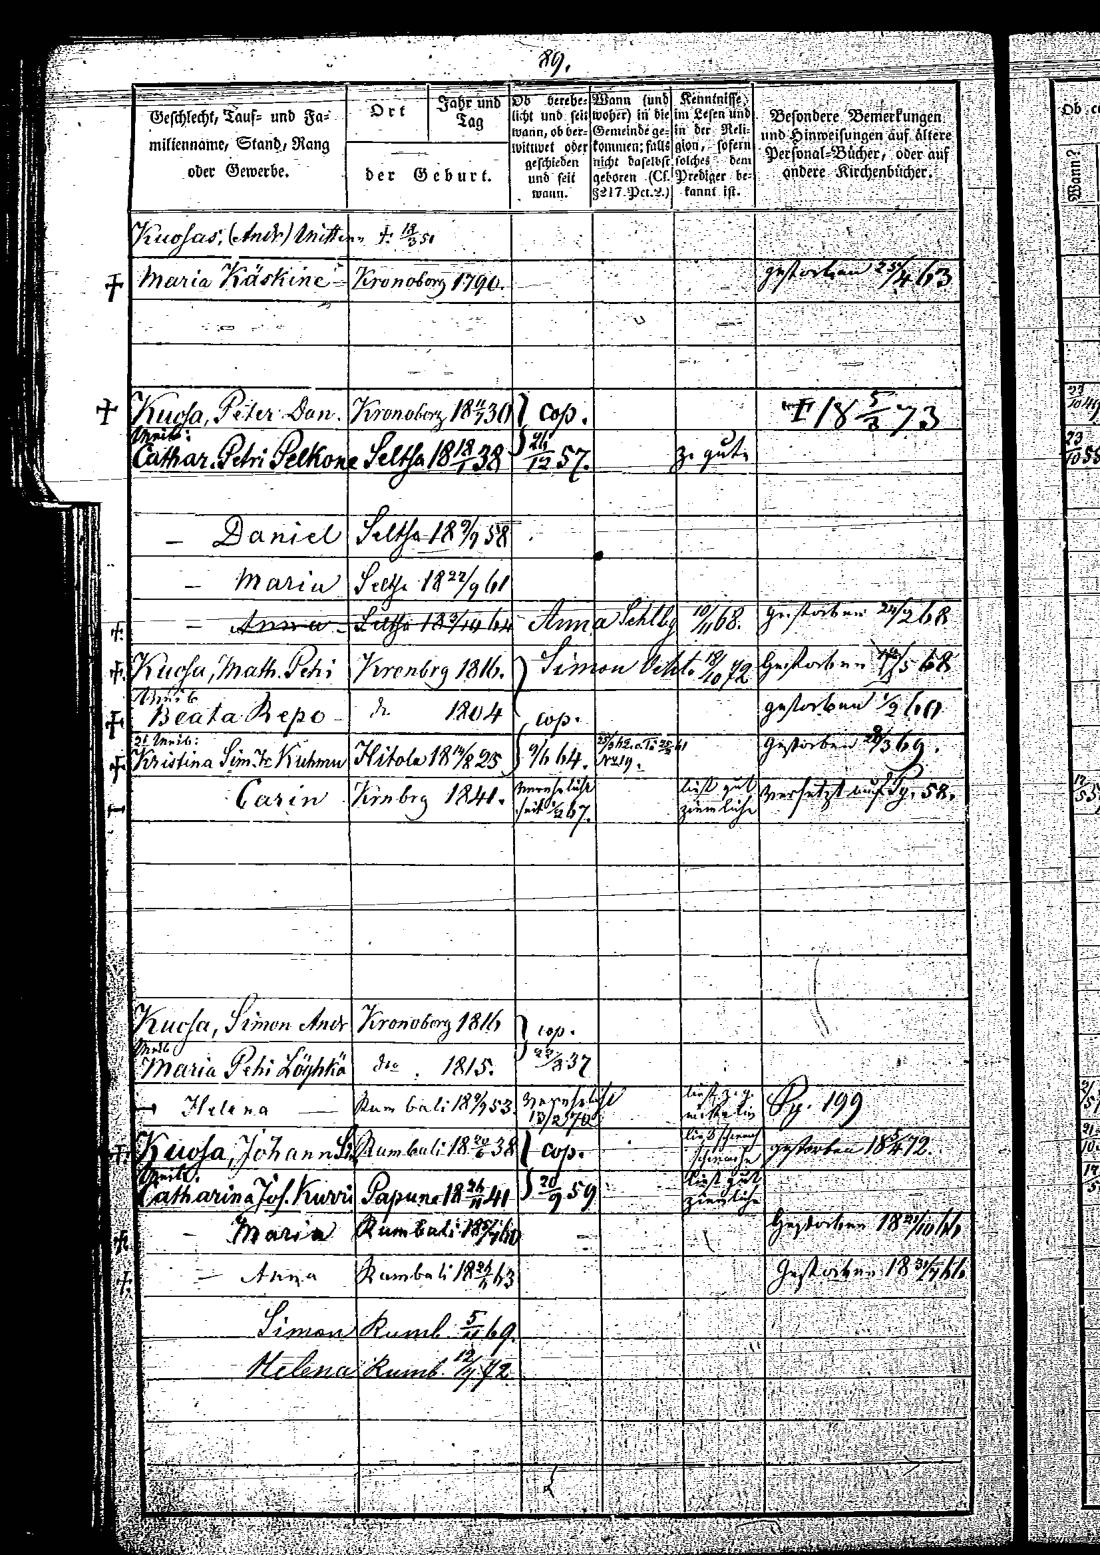 89.
Geschlecht, Tauf- und Fa-
milienname, Stand, Rang
oder Gewerbe.
Ort
Jahr und
Tag
der Geburt.
Ob verehe-
licht und seit
wann, ob ver-
wittwet oder
geschieden
und seit
wann.
Wann (und
woher) in die
Gemeinde ge-
kommen; falls
nicht daselbst
geboren (Cf.
§217. Pct. 2.)
Kenntnisse
im Lesen und
in der Reli-
gion, sofern
solches dem
Prediger be-
kannt ist.
Besondere Bemerkungen
und Hinweisungen auf ältere
Personal-Bücher, oder auf
andere Kirchenbücher.
Kuosas, (Andr) Wittwe †. 18/3 51
† Maria Käskine Kronoborg 1790. gestorben 25/4 63
† Kuosa, Peter Dan. Kronoborg 18 11/7 30 cop.
† 18 5/3 73
Weib:
Cathar. Petri Pelkone Seltsa 18 18/1 38 26/12 57. z. gut
– Daniel Seltsa 18 9/9 58
– Maria Seltsa 18 22/9 61
†. – Anna – Seltsa Anna 10/11 68. gestorben 24/2 68
† Kuosa, Math. Petri Kronbrg 1816. Simon 18/10 72 Gestorben
Weib
† Beata Repo do 1804 cop. gestorben 1/2 60
2t Weib:
† Kristina Sim. Tr Kuhmu Hitola 18 14/8 25 9/6 64. No 19. Gestorben 28/3 69.
Carin Krnbrg 1841. verehelicht
seit 67. liest gut
ziemlich versetzt auf Pg. 58.
Kuosa, Simon Andr Kronoborg 1816 cop.
Weib
Maria Petri Löyhkö do 1815. 37
Helena Rumbali 53. verehelicht
13/2 70 Pg. 199
†. Kuosa, Johann Rumbali 18 20/6 38 cop. liest schwach
schwache gestorben 18 5/4 72.
Weib.
Catharina Jos. Kurri Papuna 18 26/11 41 20/9 59 liest gut
ziemliche
† – Maria Rumbali Gestorben 18 21/10 66
†. – Anna Rumbali 63 Gestorben 18 31/7 66
Simon Rumb. 5/11 69.
Helena Rumb. 72